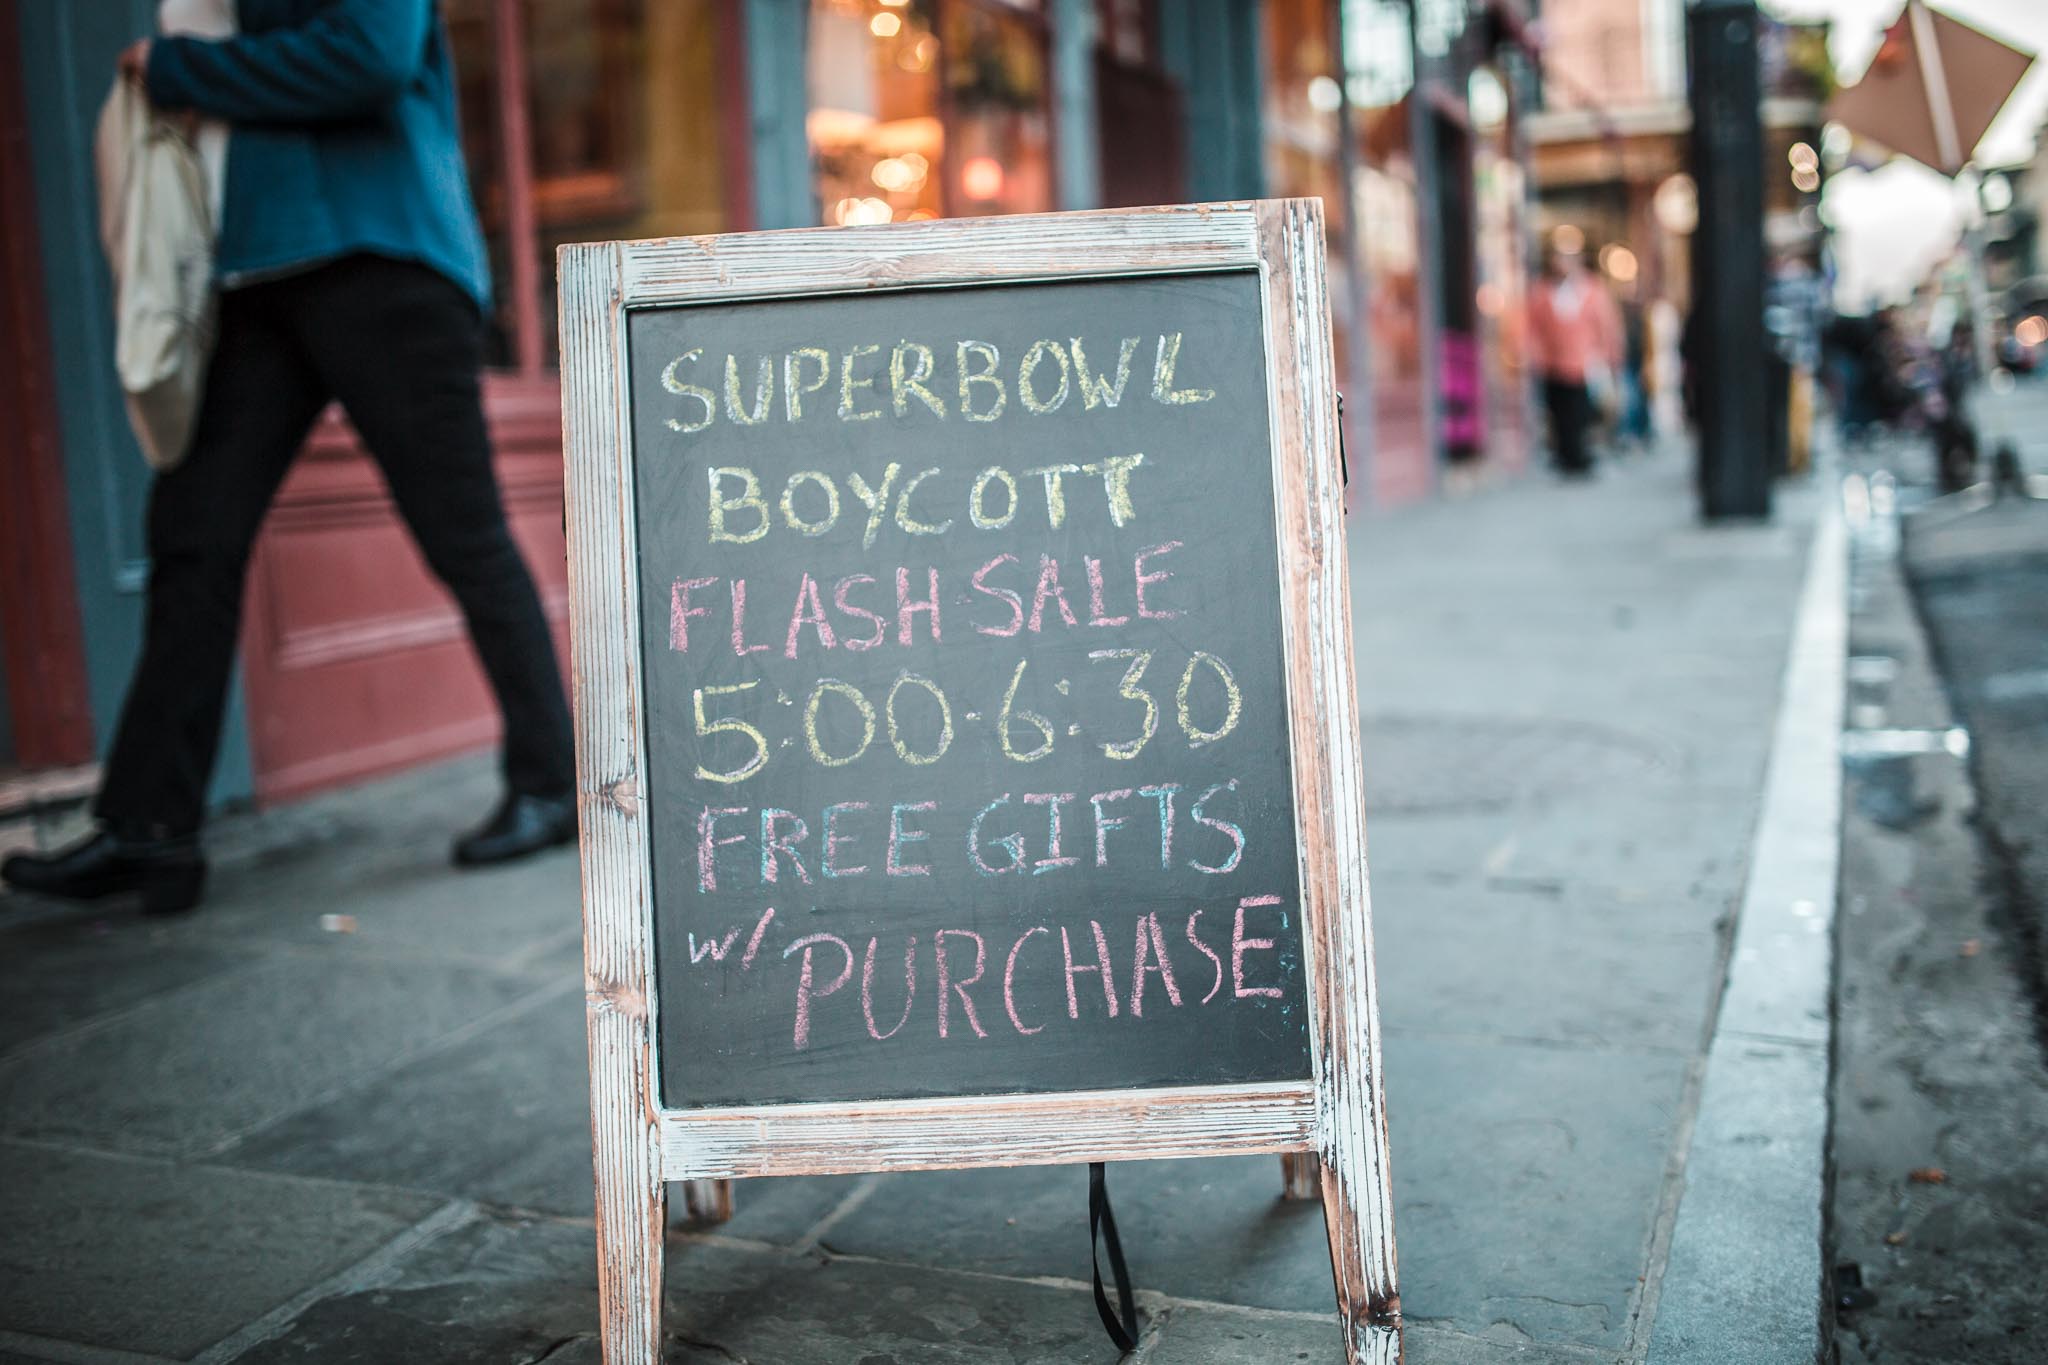 SUPERBOWL
BOYCOTT
FLASH SALE
5:00-6:30
FREE GIFTS
w/ PURCHASE